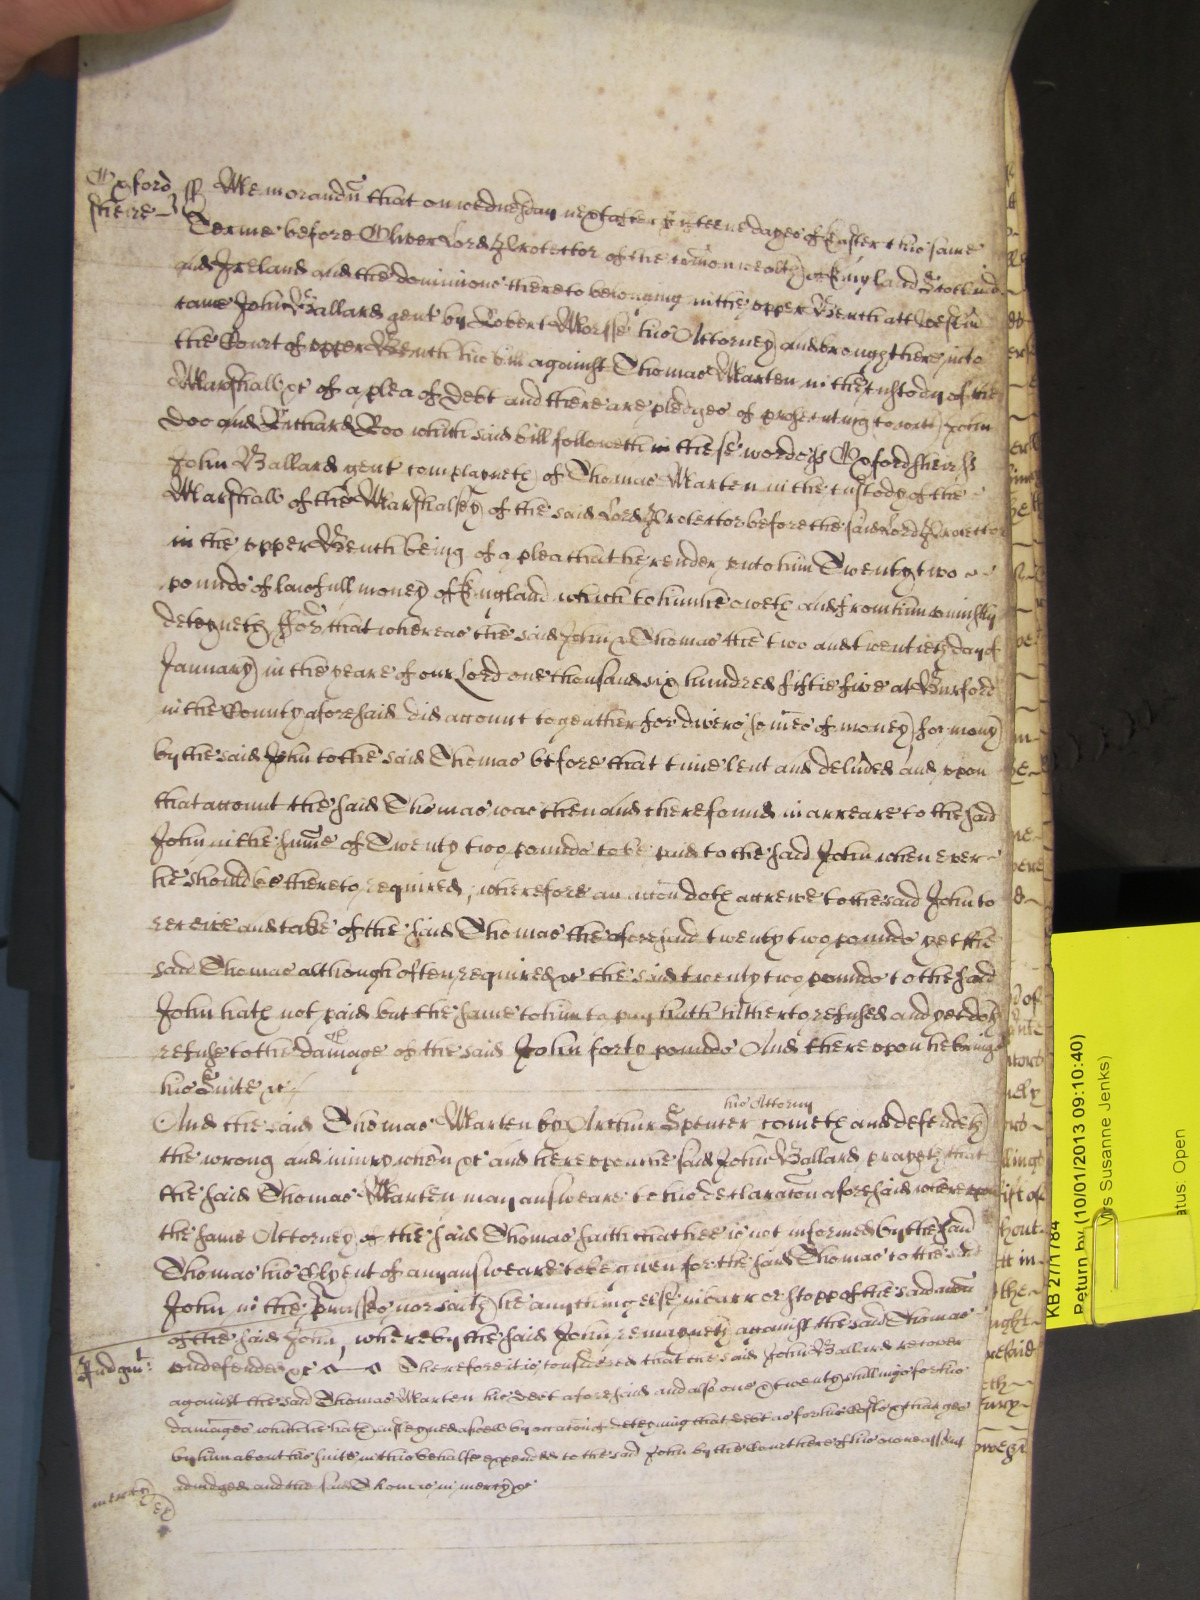 Oxford
sheire ss Memorandū that on wednesday next after fifteene dayes of Easter this same
Terme before Oliver Lord Protector of the Comon wealth of England Scotland
and Ireland and the dominions thereto belonging in the upper Bench att Westm
came John Ballard gent by Robert Morsse his Attorney and brought here into
the Court of upper Bench his bill against Thomas Marten in the custody of the
Marshall &c of a plea of Debt and there are pledges of prosecuting to witt John
Doo and Richard Roo which said bill followeth in these words ss Oxfordsheir ss
John Ballard gent complayneth of Thomas Marten in the custody of the
Marshall of the Marshalsey of the said Lord Protector before the said Lord Protector
in the upper Bench being of a plea that he render unto him Twenty two
pounds of lawfull money of England which to him he oweth and from him uniustly
deteyneth ffor that whereas the said John & Thomas the two and twentieth day of
January in the yeare of our Lord one thousand six hundred fiftie five at Burford
in the County aforesaid did account togeather for divers somes of money for mony
by the said John to the said Thomas before that time lent and delived and upon
that account the said Thomas was then and there found in arreare to the said
John in the sume of Twenty two pounds to be paid to the said John when ever
he should be thereto required, wherefore an accon doth accrewe to the said John to
receive and take of the said Thomas the aforesaid twenty two pounds yet the
said Thomas although often required &c the said twenty two pounds to the said
John hath not paid but the same to him to pay hath hitherto refused and yet doth
refuse to the damage of the said John forty pounds And thereupon he brings
his Suite &c
And the said Thomas Marten by Arthur Spencer his Attorney cometh and defendeth
the wrong and iniury when &c and hereupon the said John Ballard prayeth that
the said Thomas Marten may answeare to his declaracon aforesaid whereupon
the same Attorney of the said Thomas saith that hee is not informed by the said
Thomas his Clyent of any answeare to be given for the said Thomas to the said
John in the p'misses nor saith he any thing else in barr or stopp of the said accon
of the said John, whereby the said John remayneth against the said Thomas
Judgmt: undefended &c Therefore it is considered that the said John Ballard recover
against the said Thomas Marten his debt aforesaid and also one & twenty shillings for his
damages which he hath susteyned aswell by occasion of deteyning that debt as for his Costs & charges
by him about his suite in this behalfe expended to the said John by the Court here of his owne assent
adiudged and the said Thomas in mercy &c
mercy
KB 27/1784
Return by (10/01/2013 09:10:40)
Mrs Susanne Jenks)
atus: Open